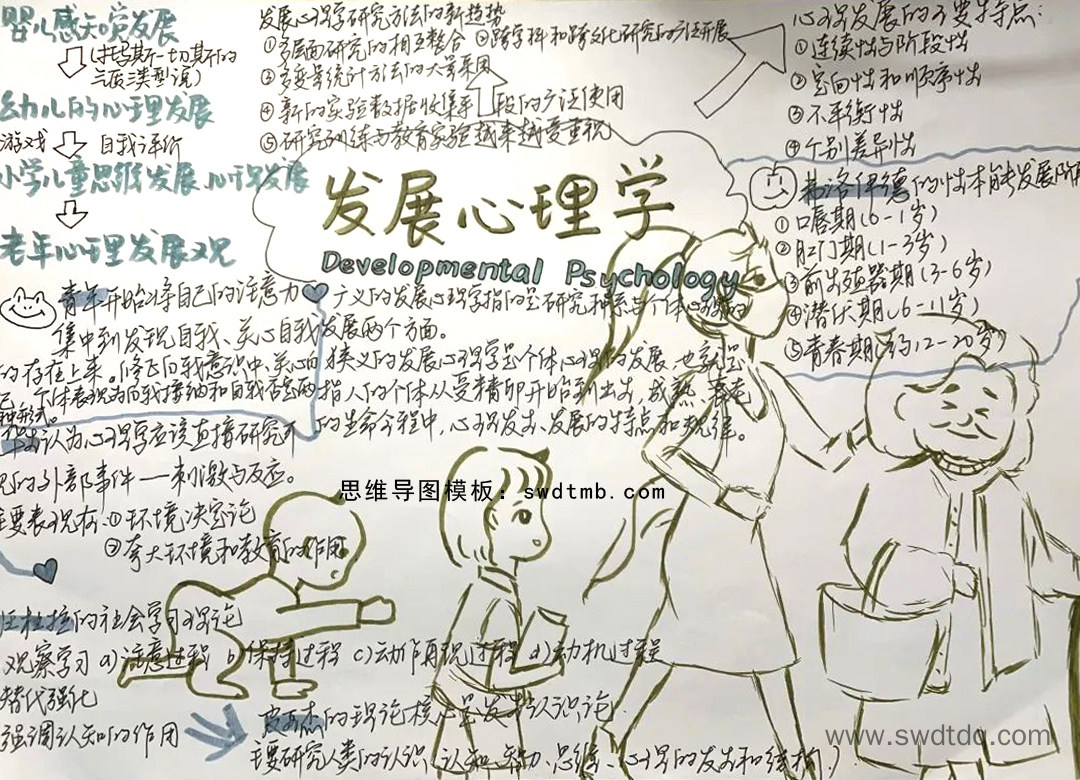 婴儿感知觉发展
(托马斯—切斯的
三类型说)
幼儿的心理发展
游戏 自我评价
小学儿童思维发展 心理发展
老年心理发展观
发展心理学研究方法的新趋势
①多层面研究的相互整合 ②跨学科和跨文化研究的广泛开展
③多变量统计方法的大量采用
④新的实验数据收集手段的广泛使用
⑤研究训练与教育实验越来越受重视
心理发展的主要特点:
①连续性与阶段性
②定向性和顺序性
③不平衡性
④个别差异性
弗洛伊德的性本能发展阶
①口唇期(0-1岁)
②肛门期(1-3岁)
③前生殖器期(3-6岁)
④潜伏期(6-11岁)
⑤青春期(约12-20岁)
发展心理学
Developmental Psychology
青年开始将自己的注意力
集中到发现自我、关心自我
的存在上来。
广义的发展心理学指的是研究种系与个体心理
发展两个方面。
狭义的发展心理学是个体心理的发展,也就是
指人的个体从受精卵开始到出生,成熟,衰老
的生命全程中,心理发生、发展的特点和规律。
个体表现为自我接纳和自我否定两
种形式。
认为心理学应该直接研究可
见的外部事件—刺激与反应。
主要表现有:①环境决定论
②夸大环境和教育的作用
思维导图模板:swdtmb.com
班杜拉的社会学习理论
观察学习 a)注意过程 b)保持过程 c)动作再现过程 d)动机过程
替代强化
强调认知的作用
皮亚杰的理论核心是发生认识论
主要研究人类的认识(认知、智力、思维、心理的发生和结构)
www.swdtdq.com